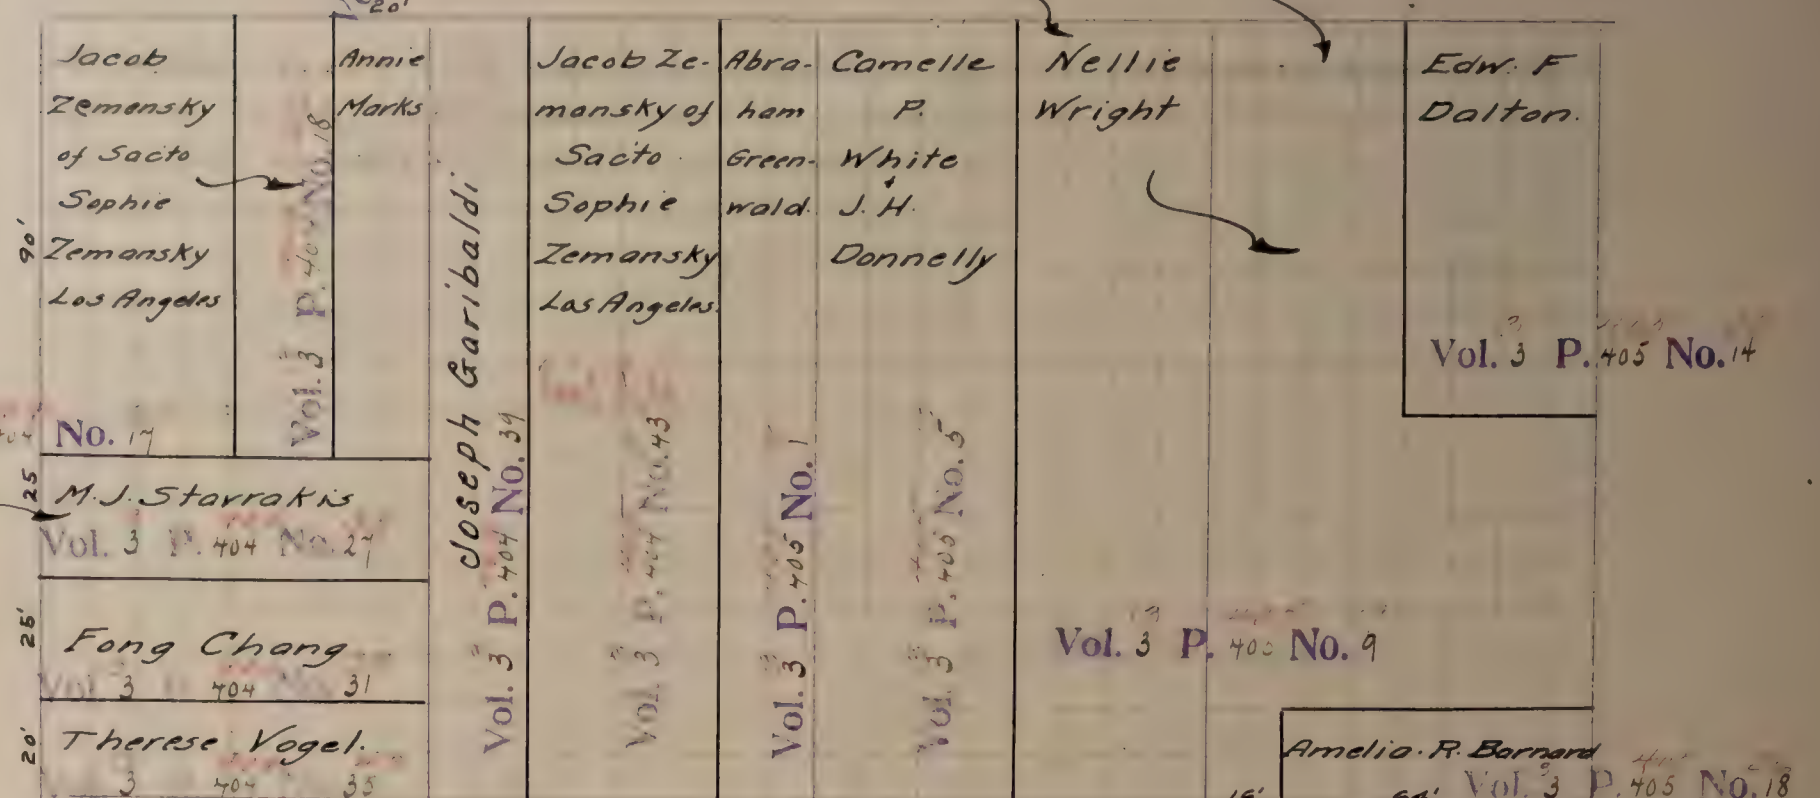 20'
Jacob
Zemansky
of Sacto
Sophie
Zemansky
Los Angeles
90'
No. 17
Vol. 3 P. 404 No. 18
Annie
Marks
Joseph Garibaldi
Vol. 3 P. 404 No. 39
Jacob Ze-
mansky of
Sacto
Sophie
Zemansky
Los Angeles.
Vol. 3 P. 404 No. 43
Abra-
ham
Green-
wald.
Vol. 3 P. 405 No. 1
Camelle
P.
White
&
J. H.
Donnelly
Vol. 3 P. 405 No. 5
Nellie
Wright
Vol. 3 P. 405 No. 9
Edw. F
Dalton.
Vol. 3 P. 405 No. 14
25
M. J. Stavrakis
Vol. 3 P. 404 No. 27
25'
Fong Chang
Vol. 3 404 No. 31
20'
Therese Vogel.
3 404 35
Amelia. R. Barnard
Vol. 3 P. 405 No. 18
15'